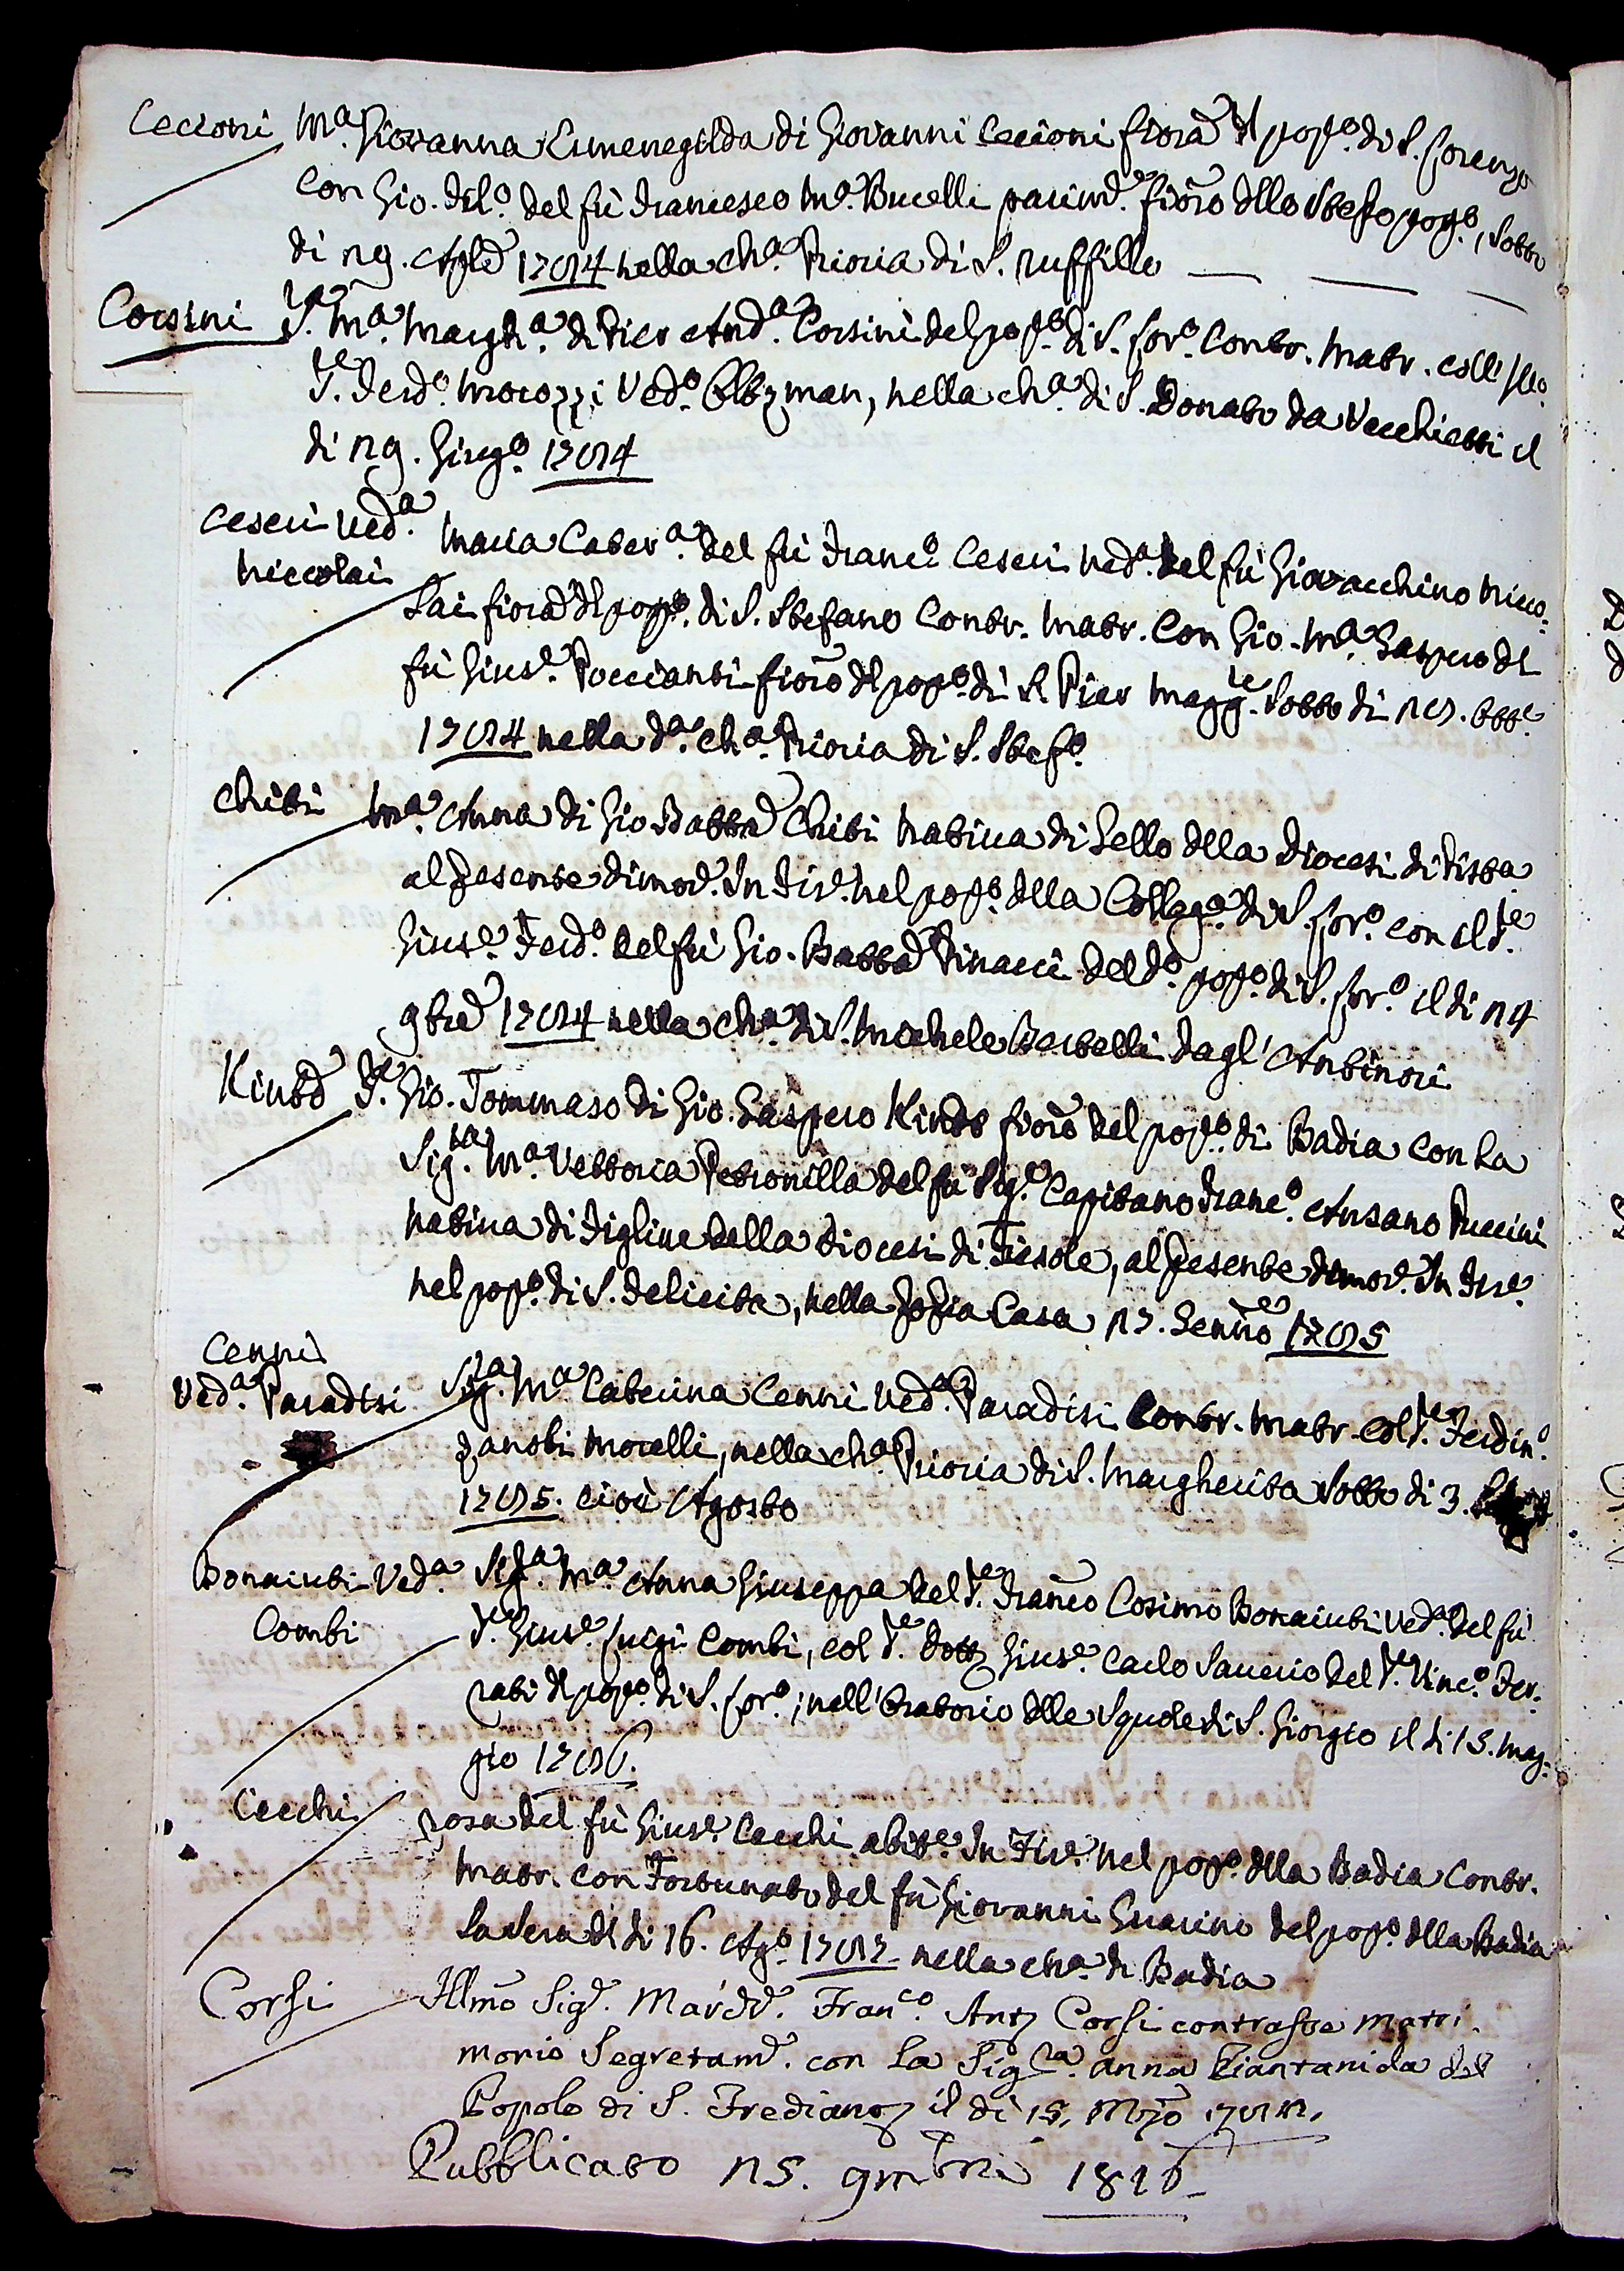 Ceccioni Mª. Giovanna Ermenegilda di Giovanni Ceccioni fiorᵃ dl popº. di S. Lorenzo
con Gio. Filº. del fù Francesco Mª. Bucelli parimᵉ. fiorº dllo Stesso popº, Sotto
di 19. Aplᵉ 1794 nella chª. Prioria di S. Ruffillo
Corsini Sʳᵃ. Mª. Marghª. di Pier Andª. Corsini del popº. di S. Lorº. Contr. Matr. coll' Illº.
Sʳᵉ. Ferdº. Morozzi Vedº. Oltzman, nella chª. di S. Donato da Vecchietti il
di 19. Giugº. 1794
Ceseri Vedª.
Niccolai
Maria Caterª. del fù Francº. Ceseri Vedª. del fù Giovacchino Nicco-
lai fiorᵃ dl popº. di S. Stefano Contr. Matr. Con Gio. Mª. Gaspero dl
fù Giusᵉ. Poccianti fiorº dl popº. di S. Pier Maggʳᵉ. Sotto di 19. Ottᵉ
1794 nella dª. chª. Prioria di S. Stefº.
Chiti Mª. Anna di Gio. Battᵃ Chiti Nativa di Sello dlla Diocesi di Pistoa
al Presente dimorᵉ. In Firᵉ. nel popº. dlla Collegª. di S. Lorº. con il Sʳᵉ.
Giusᵉ. Ferdº. del fù Gio. Battᵃ Pinacci del dº. popº. di S. Lorº. il di 14
9bre 1794 nella chª. di S. Michele Bertelli dagl' Antinori
Kindt Sʳᵉ. Gio. Tommaso di Gio. Gaspero Kindt fiorº del popº. di Badia con La
Sigʳᵃ. Mª. Vettoria Petronilla del fù Sigʳᵉ. Capitano Francº. Ansano Puccini
Nativa di Figline della diocesi di Fiesole, al Presente dimorᵉ. In Firᵉ.
nel popº. di S. Felicita, nella Propia Casa 17. Gennº 1795
Cenni
Vedª. Paradisi
Sigʳᵃ. Mª. Caterina Cenni Vedª. Paradisi Contr. Matr. col Sʳᵉ. Ferdinº.
Zanobi Morelli, nella chª. Prioria di S. Margherita Sotto di 3.
1795. cioè Agosto
Bonaiuti Vedª.
Combi
Sigʳᵃ. Mª. Anna Giuseppa del Sʳᵉ. Francº Cosimo Bonaiuti Vedª. del fù
Sʳᵉ. Giusᵉ. Luigi Combi, col Sʳᵉ. Dottʳ Giusᵉ. Carlo Saverio del Sʳᵉ. Vincº. Fer-
rati dl popº. di S. Lorº; nell' Oratorio dlle Squole di S. Giorgio il di 15. Mag-
gio 1796.
Cecchi Rosa del fù Giusᵉ. Cecchi abitᵉ. In Firᵉ. nel popº. dlla Badia Contr.
Matr. con Fortunato del fù Giovanni Guarino del popº. dlla Badia
La Sera dl di 16. Agº. 1797 nella chª. di Badia
Corsi Illmo Sigʳ. Marᵉ. Franᶜº. Antº Corsi contrasse matri-
monio Segretamᵉ. con La Sigʳᵃ. Anna Piantanida del
Popolo di S. Frediano il di 15.
Pubblicato 15. 9mbre 1816